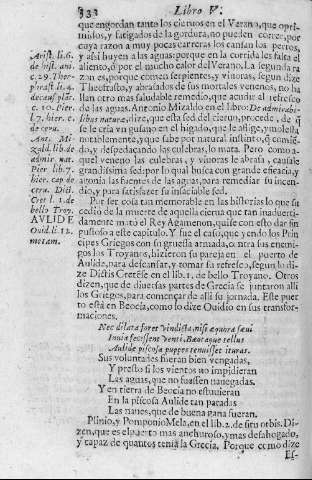 332 Libro V.
que engordan tanto los cieruos en el Verano, que opri-
midos, y fatigados de la gordura, no pueden correr, por
cuya razon a muy pocas carreras los cansan los perros,
y assi huyen a las aguas: porque en la corrida les falta el
aliento, ò por el mucho calor del Verano. La segunda ra
zon es, porque comen serpientes, y viuoras, segun dize
Theofrasto, y abrasados de sus mortales venenos, no ha
llan otro mas saludable remedio, que acudir al refresco
de las aguas. Antonio Miraldo en el libro: De admirabi-
libus naturæ, dize, que esta sed del cieruo, procede, de q̃
se le cria vn gusano en el higado, que le aflige, y molesta
notablemente, y que sabe por natural instinto, q̃ comiẽ-
do, y despedaçando las culebras, lo mata. Pero como a-
quel veneno las culebras, y viuoras le abrasa, causale
grandissima sed: por lo qual busca con grande eficacia, y
ansia las fuentes de las aguas, para remediar su incen-
dio, y para satisfazer su insaciable sed.
Por ser cosa tan memorable en las historias lo que su
cedio de la muerte de aquella cierua que tan inaduerti-
damente matò el Rey Agamenon, quise con esto dar sin
pustoso a este capitulo. Y fue el caso, que yendo los Prin
cipes Griegos con su gruessa armada, contra sus enemi-
gos los Troyanos, hizieron su pareja en el puerto de
Aulide, para descansar, y tomar su refresco, segun lo di-
ze Dictis Cretẽse en el lib. 1. de bello Troyano. Otros
dizen, que de diuersas partes de Grecia se juntaron alli
los Griegos, para començar de alli su jornada. Este puer
to està en Beocia, como lo dize Ouidio en sus transfor-
maciones.
Nec dilata foret vindicta, nisi æquora sæui
Inuia fecissent venti, Bæotaque tellus
Aulide piscosa puppes tenuisset ituras.
Sus voluntades fueran bien vengadas,
Y presto si los vientos no impidieran
Las aguas, que no fuessen nauegadas.
Y en tierra de Beocia no estuuieran
En la piscosa Aulide tan paradas
Las naues, que de buena gana fueran.
Plinio, y Pomponio Mela, en el lib. 2. de situ orbis. Di-
zen, que es el puerto mas anchuroso, y mas desahogado,
y capaz de quantos tenia la Grecia. Porque como dize
Es-
Arist. li. 6.
de hist. ani.
c. 29. Theo-
phrast li. 4.
de caus. plãt.
c. 10. Pier.
l. 7. hier. c.
de ceru.
Ant. Mi-
zald. lib. de
admir. nat.
Pier lib. 7.
hier. cap. de
ceru. Dict.
Cret l. 1. de
bello Troy.
AVLIDE.
Ouid. li. 12.
metam.